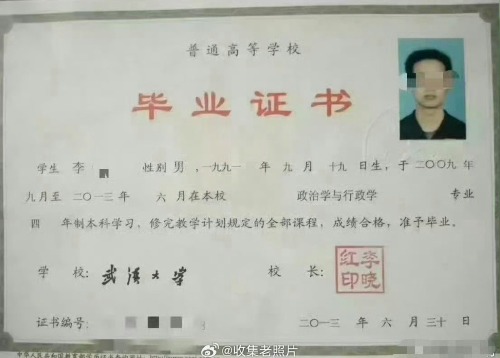 普通高等学校
毕业证书
学生 李 性别 男，一九九一 年 九 月 十九 日生，于 二〇〇九 年
九 月至 二〇一三 年 六 月在本校 政治学与行政学 专业
四 年制本科学习，修完教学计划规定的全部课程，成绩合格，准予毕业。
学 校： 武汉大学 校 长： 李晓红印
证书编号： 二〇一三 年 六 月 三十 日
@收集老照片